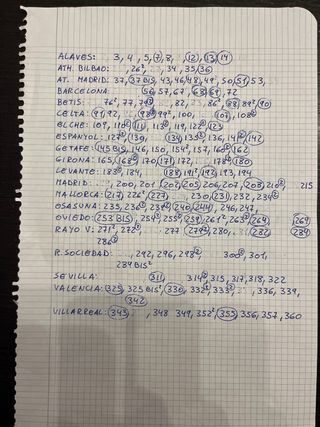 ALAVES: 3, 4, 5, 7, 8, , 12, 13, 14
ATH. BILBAO: , 26², , 34, 35, 36
AT. MADRID: 37, 37 BIS, 43, 46, 48, 49, 50, 51, 53,
BARCELONA: 56, 57, 67, 68, 69, 72
BETIS: 76², 77, 79², , 82, , 86², 88, 89², 90
CELTA: 91, 92, , 98, 99², 100, , 107, 108²
ELCHE: 109, 110², 111, 113², 119, 122², 123
ESPANYOL: 127², 130, , 134, 135², 136, 141², 142
GETAFE: 145 BIS, 146, 150, 154², 157, 160², 162
GIRONA: 165, 168², 170, 171, 172, , 178², 180
LEVANTE: 183², 184, , 188, 191², 192, 193, 194
MADRID: , 200, 201, 202, 205, 206, 207, 208, 210², 215
MALLORCA: 217, 226², 227, , 230, 231, 232, 234²
OSASUNA: 235, 236², 239², 240, 244, 246, 247
OVIEDO: 253 BIS, 254², 255², 259, 261², 263², 264, 269
RAYO V: 271², 272², 277, 279², 280, , 282, 284
286²
R. SOCIEDAD: , 292, 296, 298², , 300², 301,
289 BIS²
SEVILLA: 311, 314², 315, 317, 318, 322
VALENCIA: 325, 325 BIS², 330, 332², 333², , 336, 339,
342
VILLARREAL: 343 , 348 349, 352², 355, 356, 357, 360